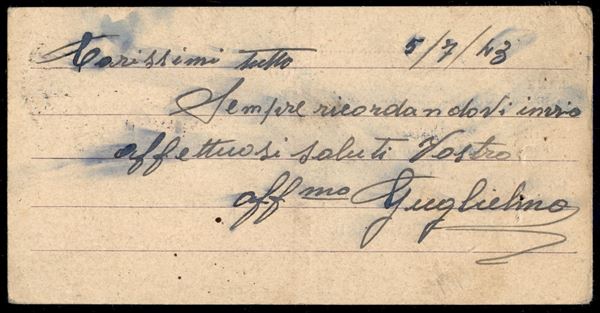 Carissimi tutto 5/7/43
Sempre ricordandovi invio
affettuosi saluti Vostro
affmo Guglielmo